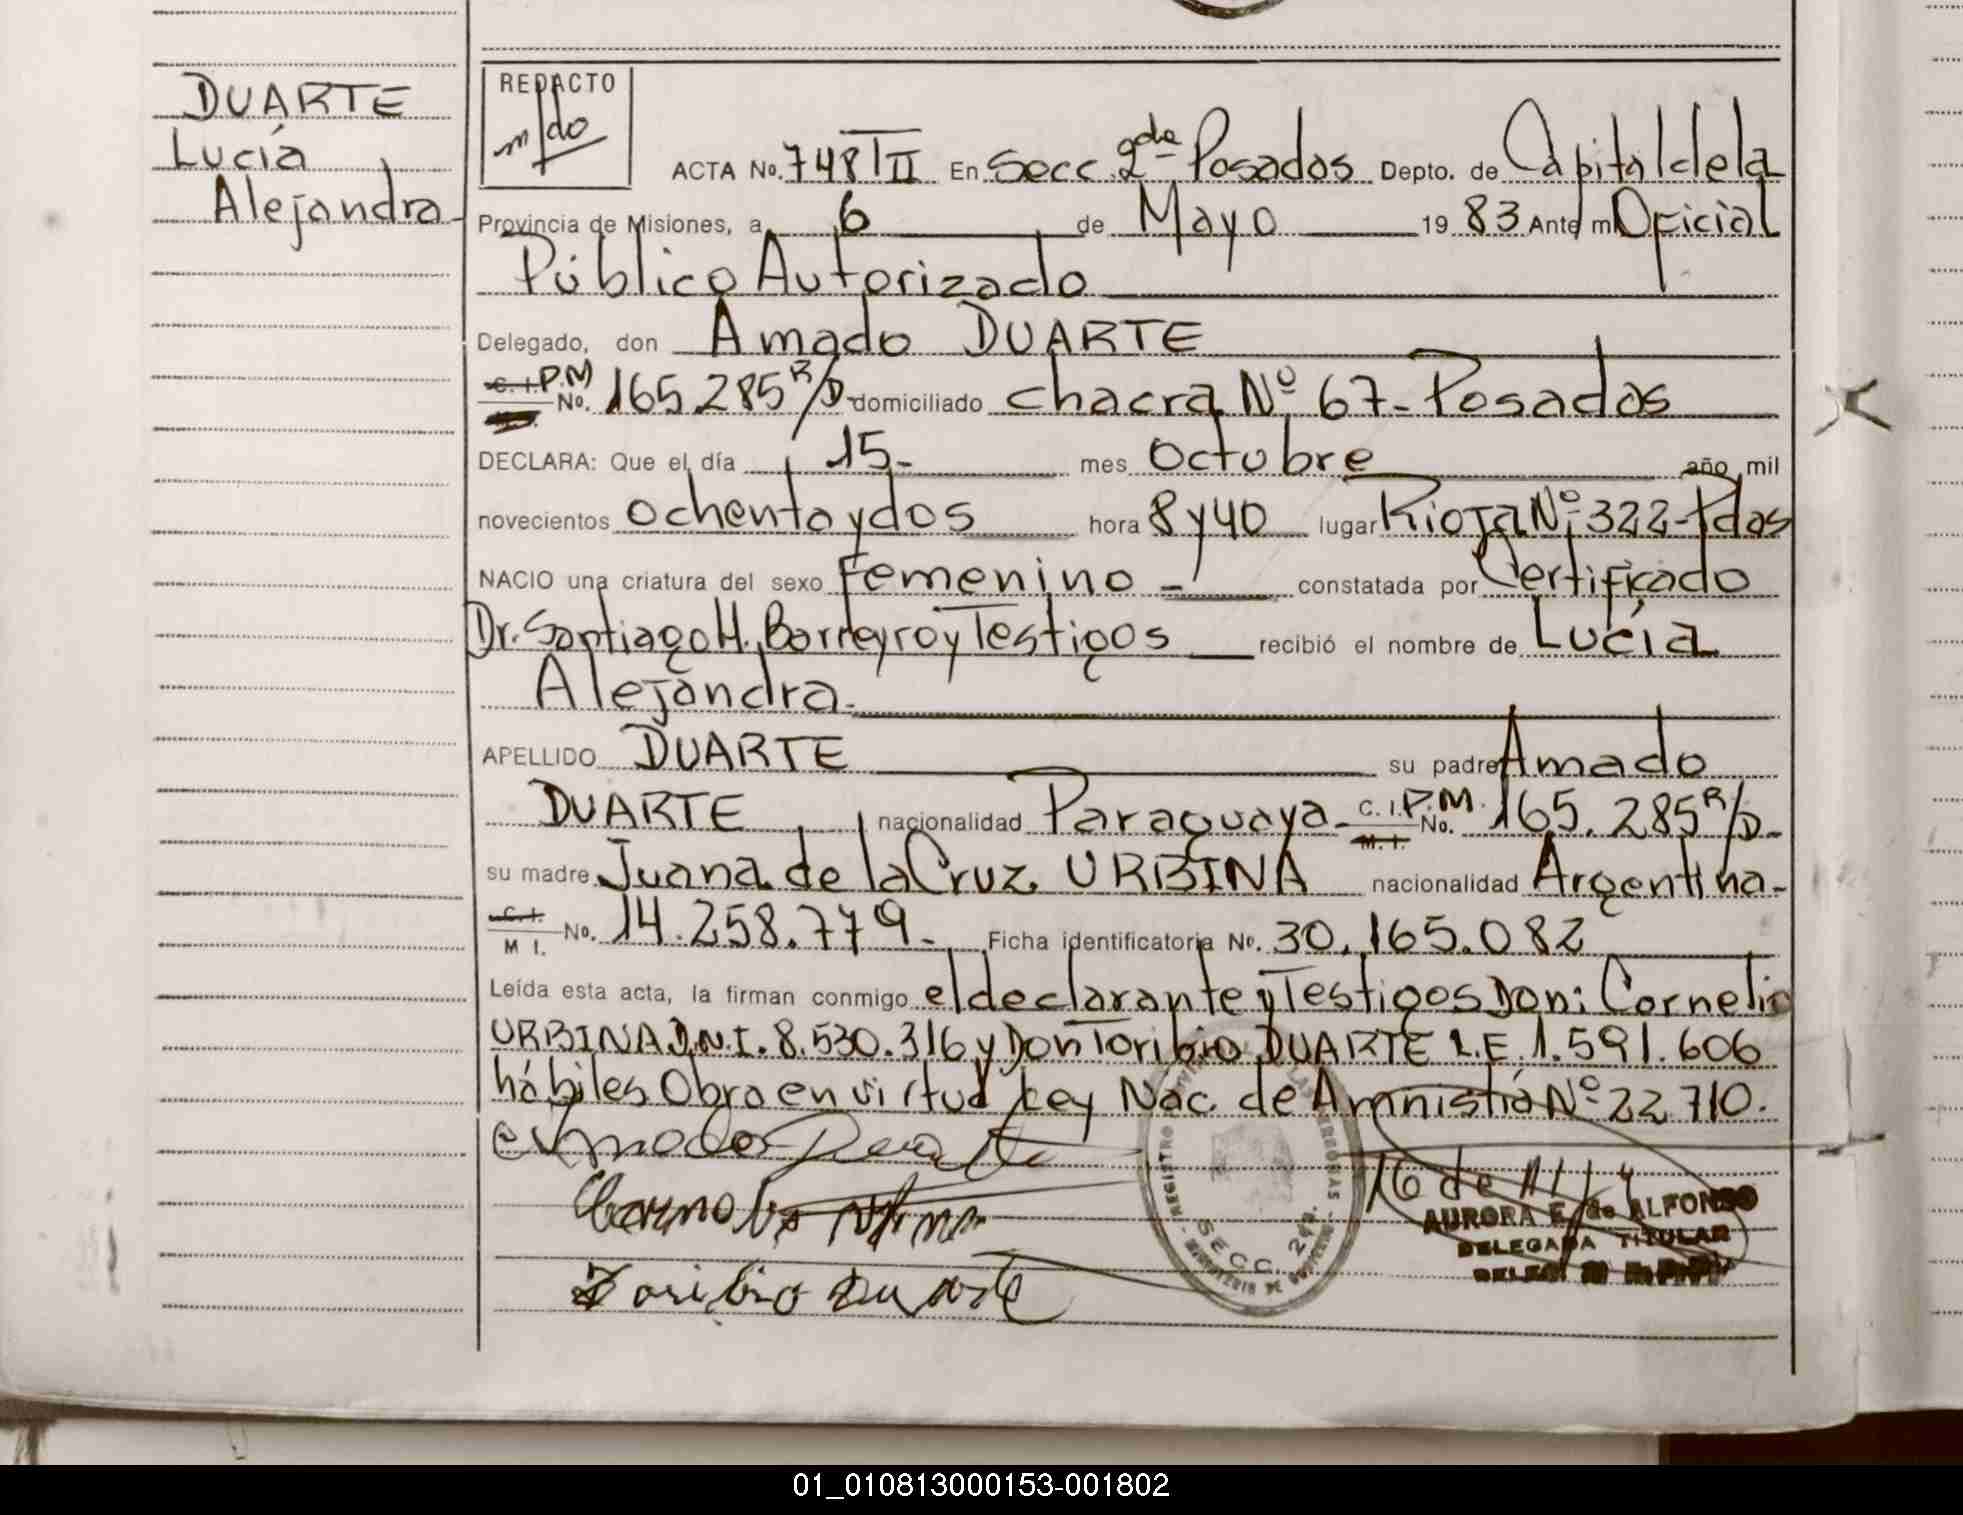 DUARTE
Lucía
Alejandra
REDACTO
ACTA No. 748 TII En Secc. 2da Posadas Depto. de Capital de la
Provincia de Misiones, a 6 de Mayo 19 83 Ante mi Oficial
Público Autorizado
Delegado, don Amado DUARTE
C. I. P.M No. 165.285 R/D domiciliado chacra Nº 67- Posadas
DECLARA: Que el día 15- mes Octubre año mil
novecientos ochenta y dos hora 8 y 40 lugar Rioja Nº 322-Pdas
NACIO una criatura del sexo Femenino - constatada por Certificado
Dr. Santiago H. Barreyro y Testigos recibió el nombre de Lucía
Alejandra-
APELLIDO DUARTE su padre Amado
DUARTE nacionalidad Paraguaya- C. I. P.M. No. 165.285 R/D-
M. I.
su madre Juana de la Cruz URBINA nacionalidad Argentina-
C. I. No. 14.258.779- Ficha identificatoria No. 30.165.082
M I.
Leída esta acta, la firman conmigo el declarante y Testigos Don: Cornelio
URBINA D.N.I. 8.530.316 y Don Toribio DUARTE L.E. 1.591.606
hábiles Obra en virtud Ley Nac. de Amnistía Nº 22.710.
Amado Duarte
Toribio Duarte
SECC 2da.
AURORA E. de ALFONSO
DELEGADA TITULAR
01_010813000153-001802